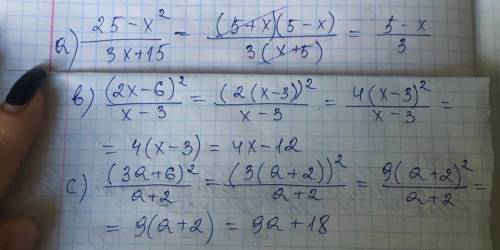 a) (25-x²)/(3x+15) = ((5+x)(5-x))/(3(x+5)) = (5-x)/3
b) (2x-6)²/(x-3) = (2(x-3))²/(x-3) = 4(x-3)²/(x-3) =
= 4(x-3) = 4x-12
c) (3a+6)²/(a+2) = (3(a+2))²/(a+2) = 9(a+2)²/(a+2) =
= 9(a+2) = 9a+18